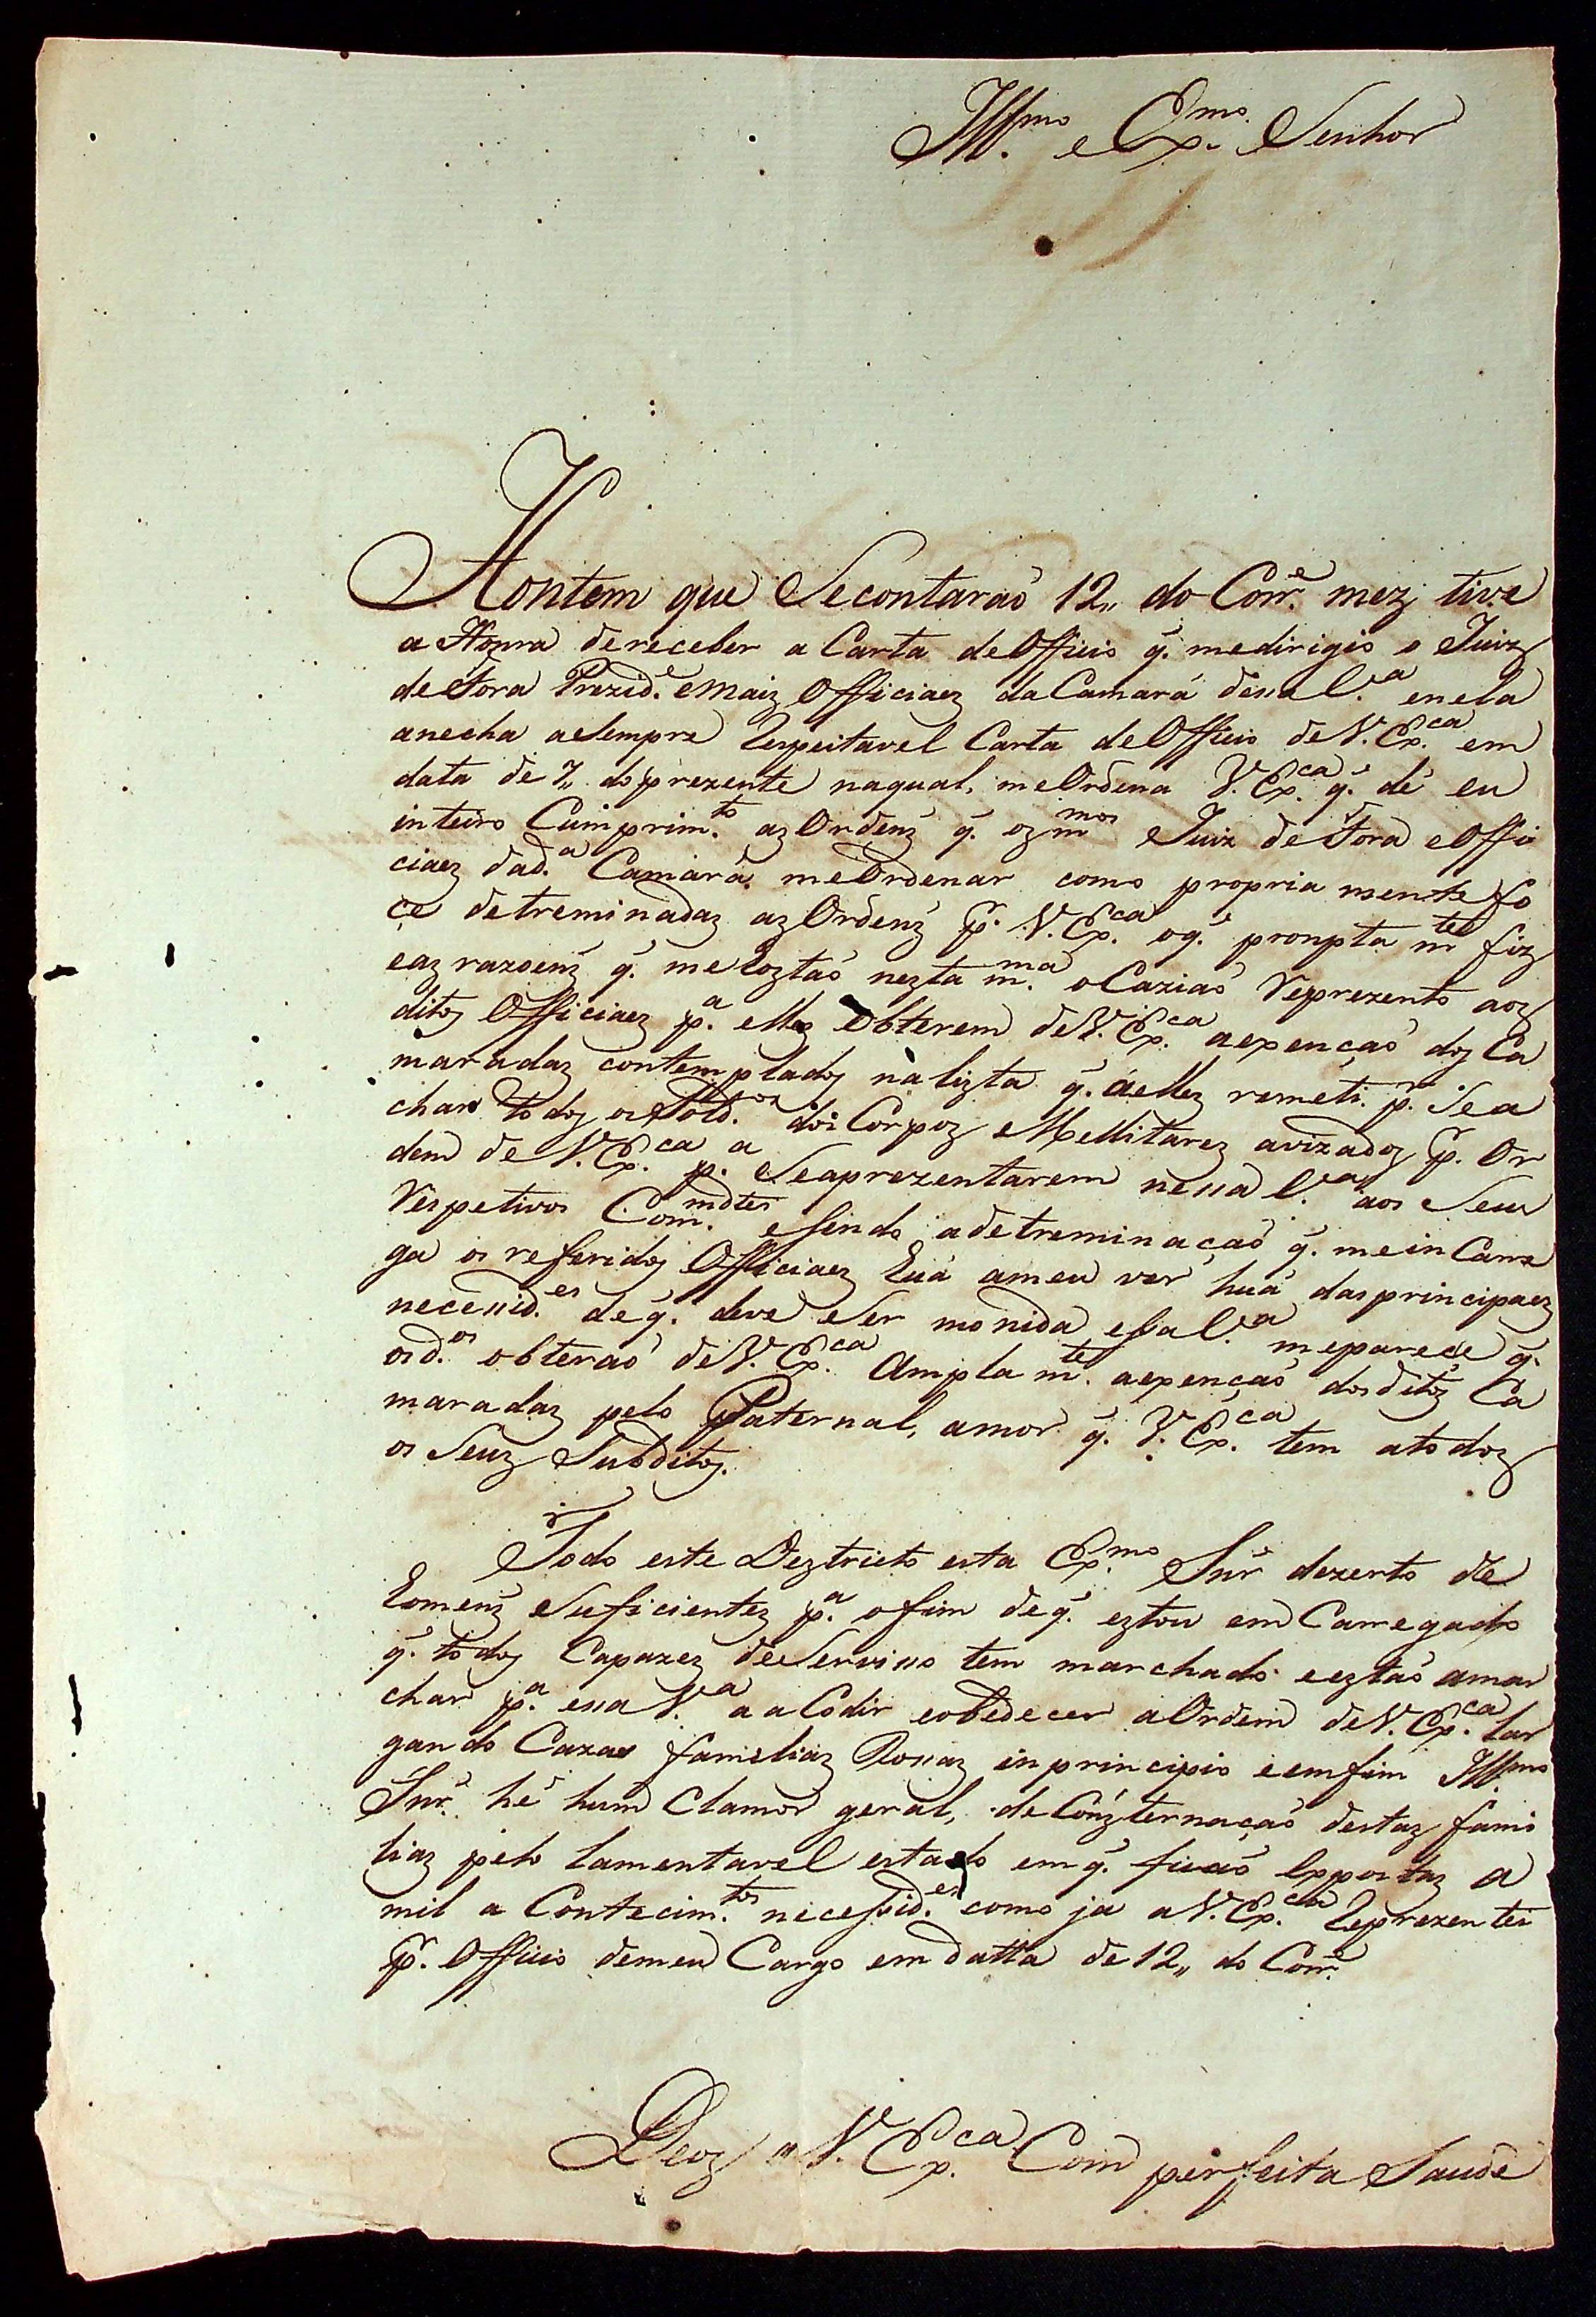 Ill.mo e Ex.mo Senhor
Hontem que Secontaraõ 12,, do Corr.e mez tive
a Honra dereceber a Carta deOfficio q̃. medirigio o Juiz
deFora Prezid.e eMaiz Officiaez daCamará dessa V.a enela
anecha aSempre Respeitavel Carta deOfficio deV. Ex.ca em
data de 7,, do prezente naqual, meOrdena V. Ex.ca q̃. dê eu
inteiro Cumprim.to azOrdenz q̃. oz m.mos Juiz deFora eOffi
ciaez dad.a Camara. meOrdenar como propria mente fo
çe detreminadaz azOrdenz p̃. V. Ex.ca oq̃. pronpta m.te fiz
eaz razoenz q̃. meCoztaõ nezta m.ma oCaziaõ Reprezento aoz
ditoz Officiaez p.a elles obterem deV. Ex.ca aexpençaõ doz Ca
maradaz contempladoz nalizta q̃. áelles remeti. p̃. Sea
chare todoz osSold.os dosCorpoz eMellitarez avizadoz p̃. Or
dem de V. Ex.ca p.a Seaprezentarem nessa V.a aos Seus
Respetivos Com.mdtes eSendo adetreminaçaõ q̃. meinCarre
ga os referidoz Officiaez Euá ameu ver huá dasprincipaez
necessid.es deq̃. deve Ser monida essa V.a meparece q̃.
osd.os obteraõ deV. Ex.ca Ampla m.te aexpençaõ dosditoz Ca
maradaz pelo Paternal, amor q̃. V. Ex.ca tem atodoz
os Seuz Subditoz.
Todo este Deztricto esta Ex.mo Snr̃ dezerto de
Eomenz Suficientez p.a ofim deq̃. eztou emCarregado
q̃. todoz Capazez deServisso tem marchado eeztaõ amar
char p.a essa V.a aaCodir eobedecer aOrdem deV. Ex.ca lar
gando Cazas fameliaz Rossaz inprincipio eemfim Ill.mo
Snr̃. hé hum Clamor geral, deConzternaçaõ destaz fami
liaz pelo lamentavel estado emq̃. ficaõ Expostaz a
mil aContecim.tos necessid.es como ja aV. Ex.ca Reprezentei
p̃. Officio demeu Cargo em datta de 12,, do Corr.e
Deoz a V. Ex.ca Com perfeita Saude